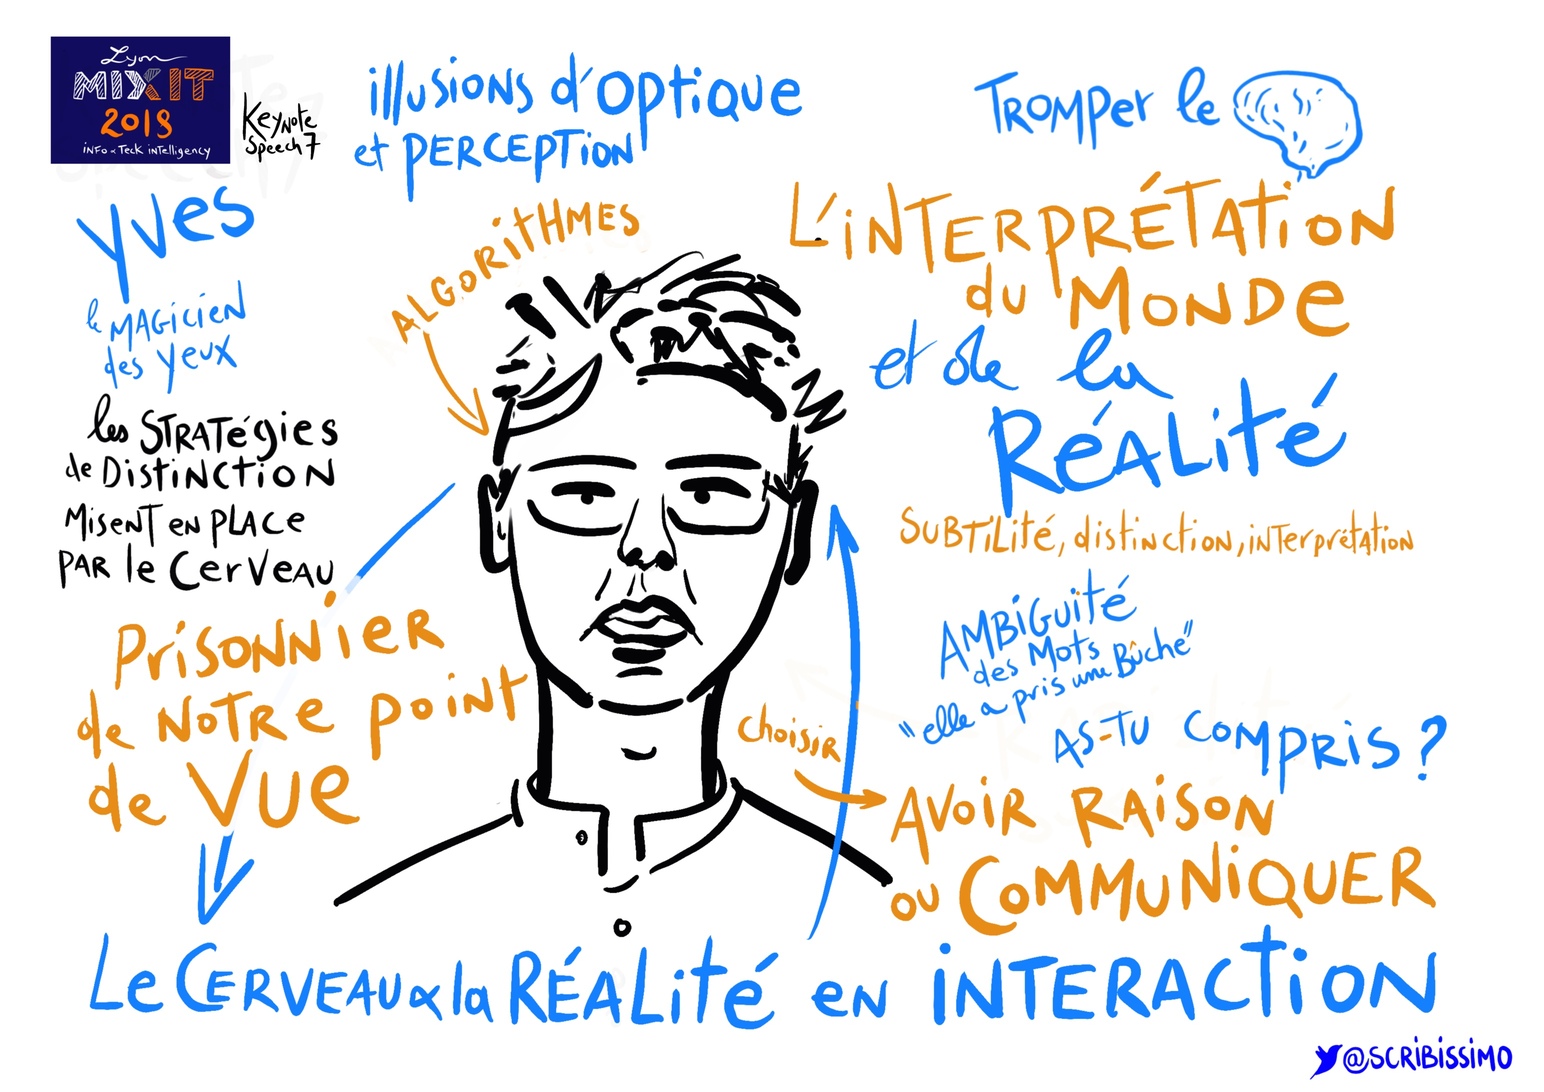 Lyon
MIXIT
2018
iNFO & Teck iNTelligency
Keynote
Speech 7
illusions d'optique
et PERCEPTiON
TROMPer le
yves
le MAGiCieN
des yeux
ALGORiTHMES
L'iNTERPRÉTATiON
du MONDe
et de la
RÉALité
les STRATégies
de DisTiNCTiON
MiseNT eN PLACe
PAR le CerVeAU
SUBTiLité, distinction, iNTerprétATiON
PRiSONNiER
de NOTRe point
de VUe
AMBiGuiTÉ
des MoTs
"elle a pris une Bûche"
AS-TU COMPRiS ?
choisiR
AVOiR RAiSON
ou COMMUNiQUER
Le CERVEAU & la RÉALité eN iNTERACTiON
@SCRiBiSSiMO